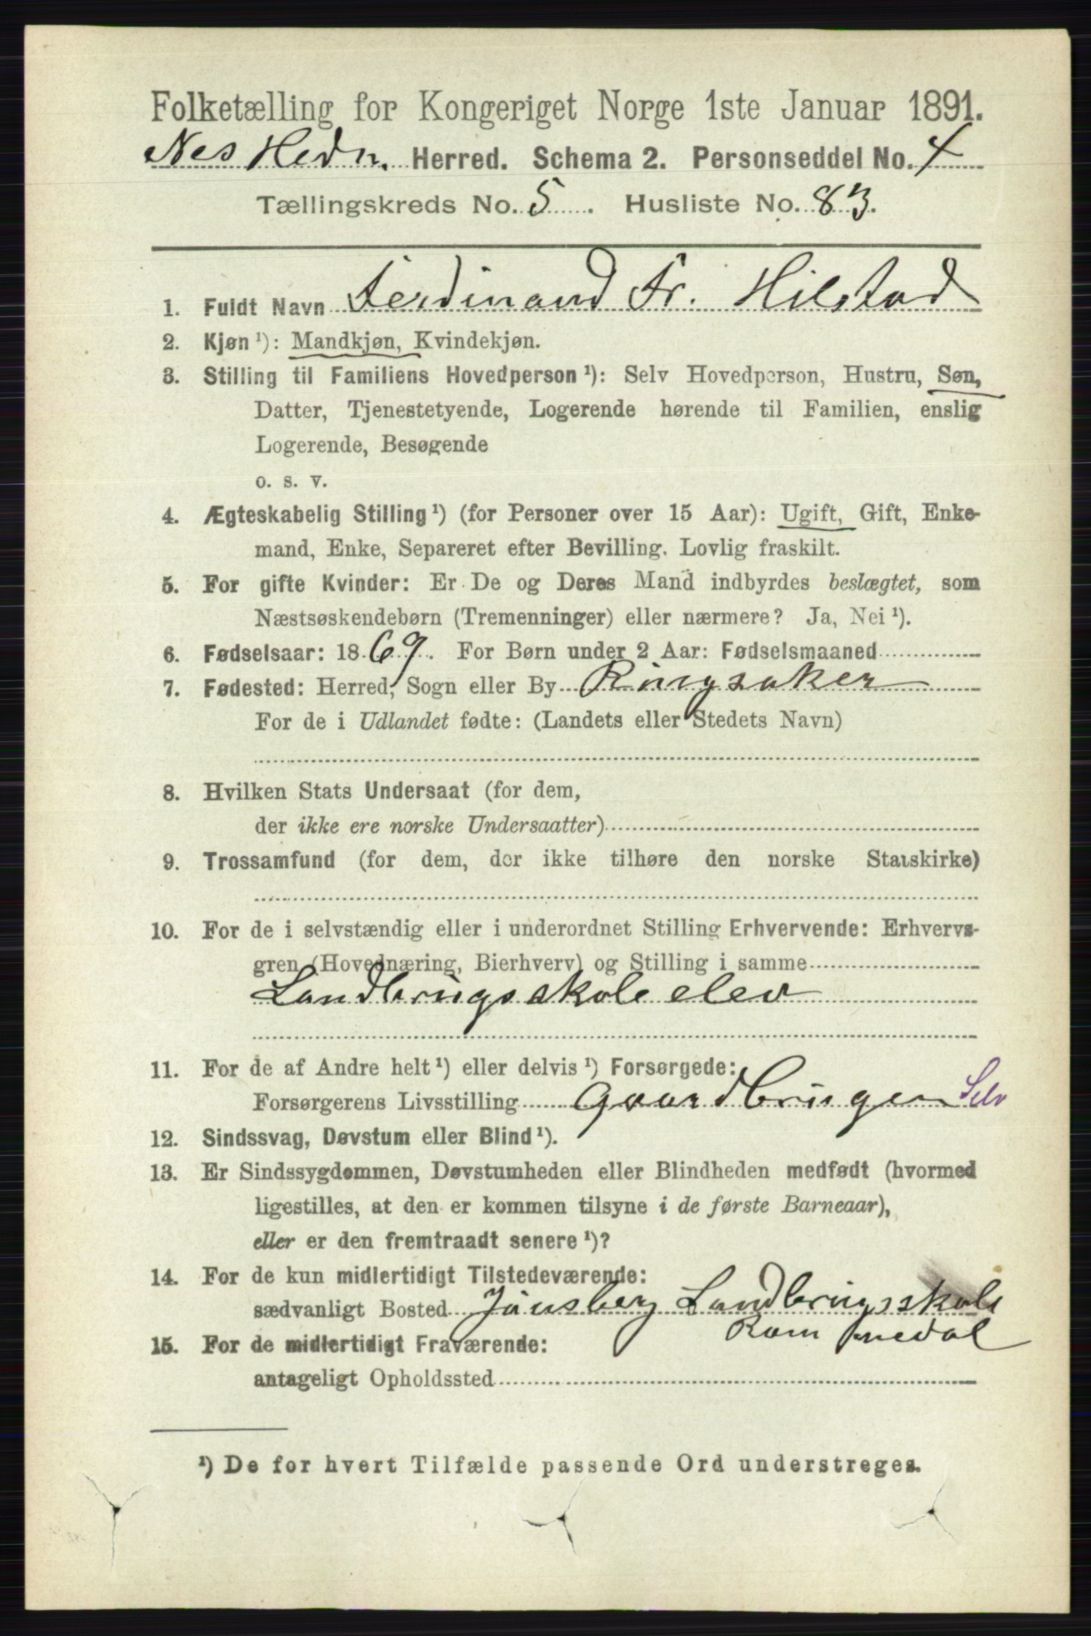 Folketælling for Kongeriget Norge 1ste Januar 1891.
Nes Hedm. Herred. Schema 2. Personseddel No. 4
Tællingskreds No. 5. Husliste No. 83.
1. Fuldt Navn Ferdinand Fr. Hilstad
2. Kjøn ¹): Mandkjøn, Kvindekjøn.
3. Stilling til Familiens Hovedperson ¹): Selv Hovedperson, Hustru, Søn,
Datter, Tjenestetyende, Logerende hørende til Familien, enslig
Logerende, Besøgende
o. s. v.
4. Ægteskabelig Stilling ¹) (for Personer over 15 Aar): Ugift, Gift, Enke-
mand, Enke, Separeret efter Bevilling. Lovlig fraskilt.
5. For gifte Kvinder: Er De og Deres Mand indbyrdes beslægtet, som
Næstsøskendebørn (Tremenninger) eller nærmere? Ja, Nei ¹).
6. Fødselsaar: 1869. For Børn under 2 Aar: Fødselsmaaned
7. Fødested: Herred, Sogn eller By Ringsaker
For de i Udlandet fødte: (Landets eller Stedets Navn)
8. Hvilken Stats Undersaat (for dem,
der ikke ere norske Undersaatter)
9. Trossamfund (for dem, der ikke tilhøre den norske Statskirke)
10. For de i selvstændig eller i underordnet Stilling Erhvervende: Erhvervs-
gren (Hovednæring, Bierhverv) og Stilling i samme
Landbrugsskole elev
11. For de af Andre helt ¹) eller delvis ¹) Forsørgede:
Forsørgerens Livsstilling Gaardbruger Selv
12. Sindssvag, Døvstum eller Blind ¹).
13. Er Sindssygdommen, Døvstumheden eller Blindheden medfødt (hvormed
ligestilles, at den er kommen tilsyne i de første Barneaar),
eller er den fremtraadt senere ¹)?
14. For de kun midlertidigt Tilstedeværende:
sædvanligt Bosted Jønsberg Landbrugsskole
Romedal
15. For de midlertidigt Fraværende:
antageligt Opholdssted
¹) De for hvert Tilfælde passende Ord understreges.